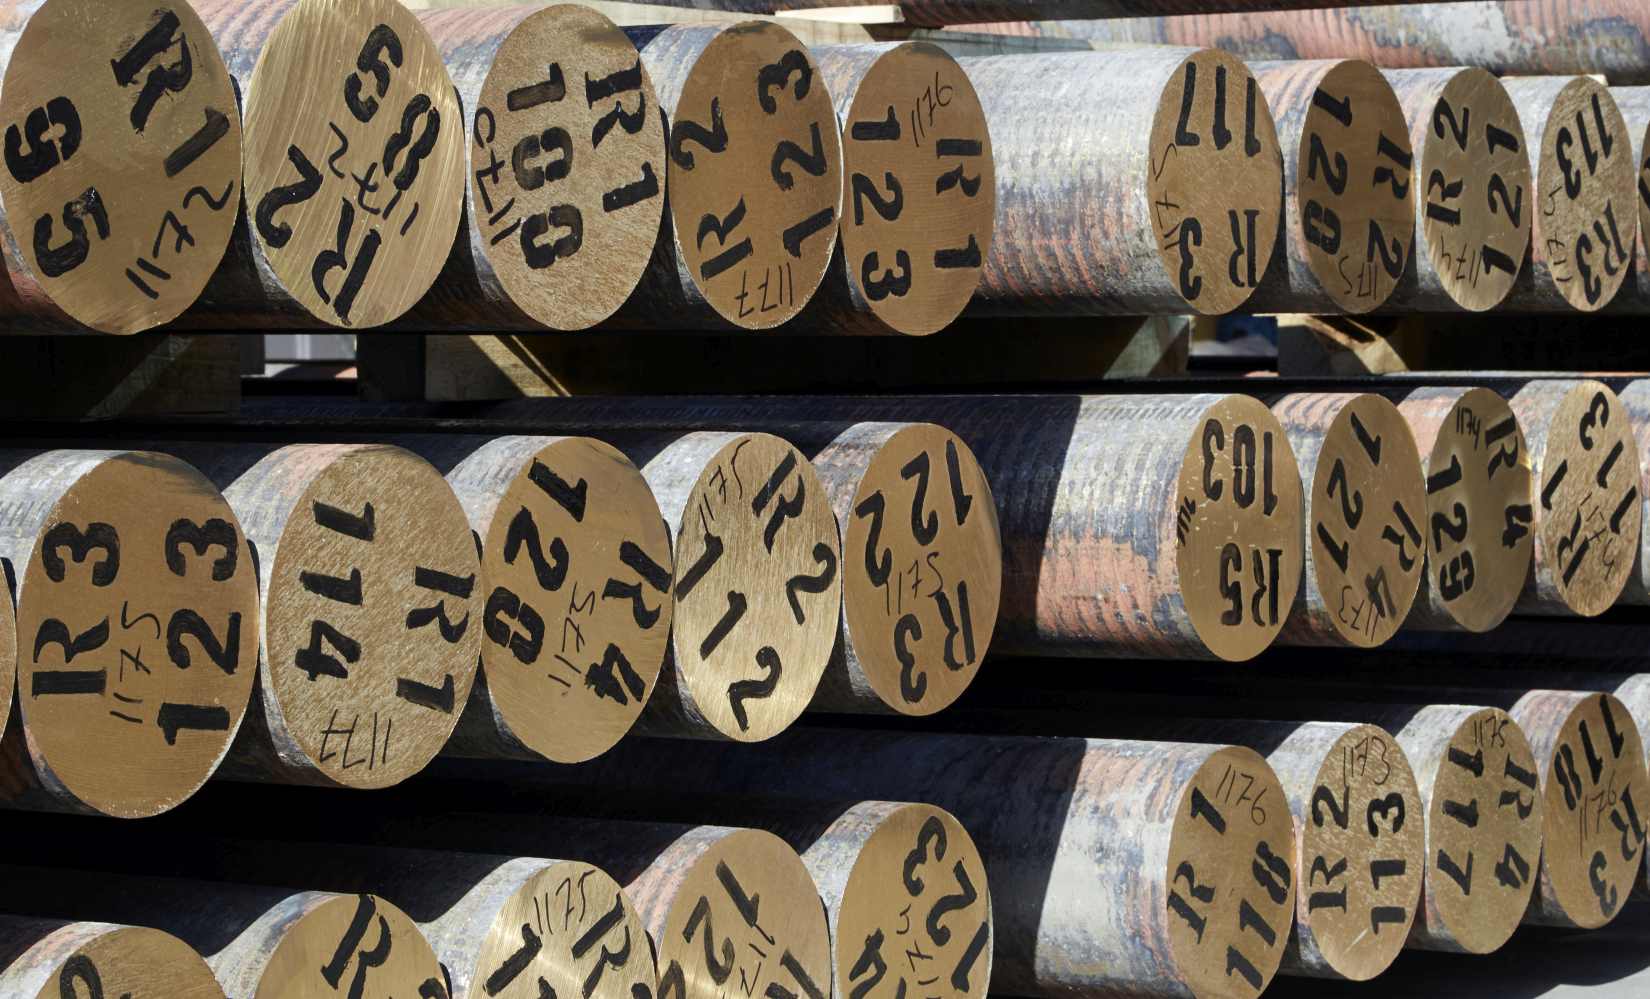 R1
55
1172
58
1172
R2
R1
100
1172
R2
123
1177
1176
R1
123
117
1175
R3
120
R2
1175
R2
121
1174
113
1174
R3
R3
123
1175
114
R1
1177
120
R4
1175
1175
R2
112
122
1175
R3
103
R5
121
R4
1173
1174
R4
125
113
R1
1174
1176
R1
118
1173
R2
113
1175
R4
117
118
1176
R3
R
1175
R
12
123